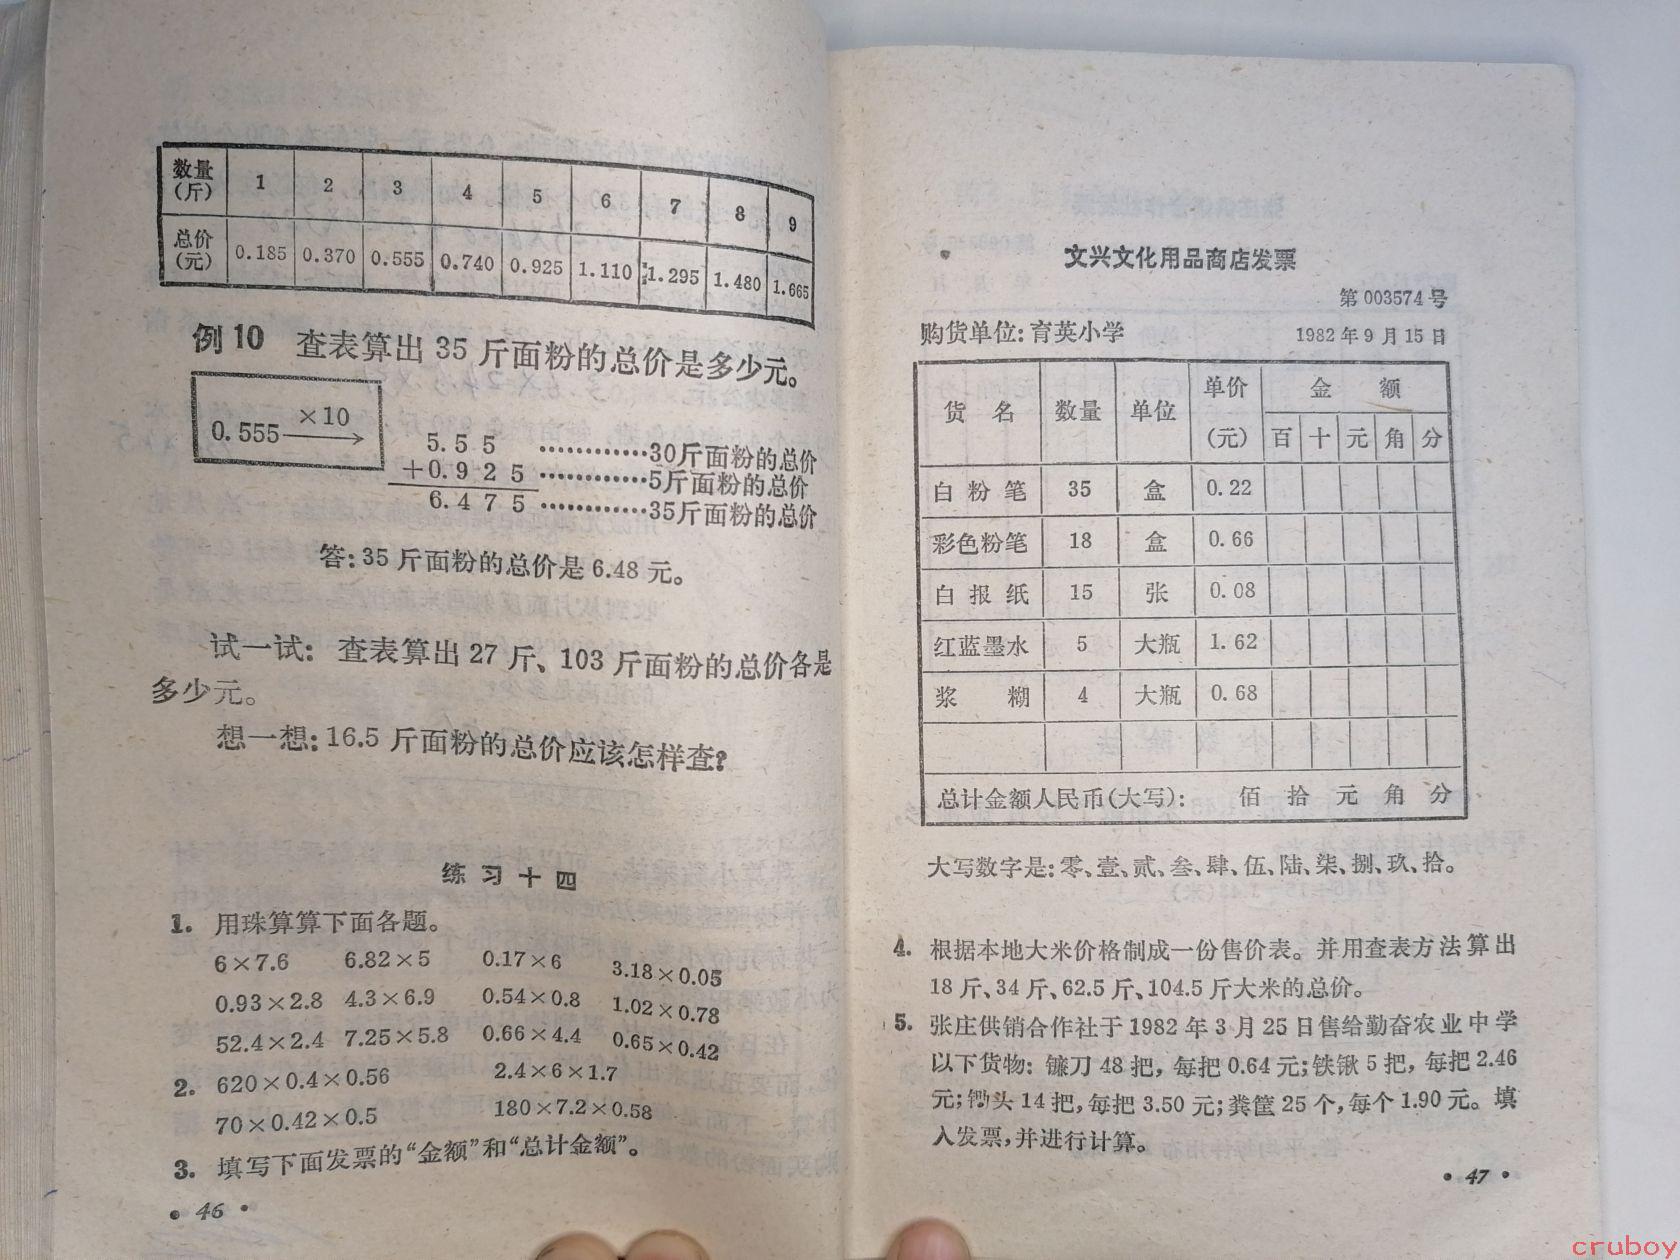 数量(斤) 1 2 3 4 5 6 7 8 9
总价(元) 0.185 0.370 0.555 0.740 0.925 1.110 1.295 1.480 1.665
例10 查表算出 35 斤面粉的总价是多少元。
×10
0.555
5.5 5 …………30斤面粉的总价
+0.9 2 5 …………5斤面粉的总价
6.4 7 5 …………35斤面粉的总价
答:35 斤面粉的总价是 6.48 元。
试一试: 查表算出 27 斤、103 斤面粉的总价各是
多少元。
想一想:16.5 斤面粉的总价应该怎样查?
练习十四
1. 用珠算算下面各题。
6×7.6 6.82×5 0.17×6 3.18×0.05
0.93×2.8 4.3×6.9 0.54×0.8 1.02×0.78
52.4×2.4 7.25×5.8 0.66×4.4 0.65×0.42
2. 620×0.4×0.56 2.4×6×1.7
70×0.42×0.5 180×7.2×0.58
3. 填写下面发票的“金额”和“总计金额”。
• 46 •
文兴文化用品商店发票
第 003574 号
购货单位:育英小学 1982 年 9 月 15 日
货名 数量 单位 单价(元) 金额
百 十 元 角 分
白粉笔 35 盒 0.22
彩色粉笔 18 盒 0.66
白报纸 15 张 0.08
红蓝墨水 5 大瓶 1.62
浆糊 4 大瓶 0.68
总计金额人民币(大写): 佰 拾 元 角 分
大写数字是:零、壹、贰、叁、肆、伍、陆、柒、捌、玖、拾。
4. 根据本地大米价格制成一份售价表。并用查表方法算出
18 斤、34 斤、62.5 斤、104.5 斤大米的总价。
5. 张庄供销合作社于 1982 年 3 月 25 日售给勤奋农业中学
以下货物: 镰刀 48 把, 每把 0.64 元;铁锹 5 把, 每把 2.46
元;锄头 14 把,每把 3.50 元;粪筐 25 个,每个 1.90 元。填
入发票,并进行计算。
• 47 •
cruboy